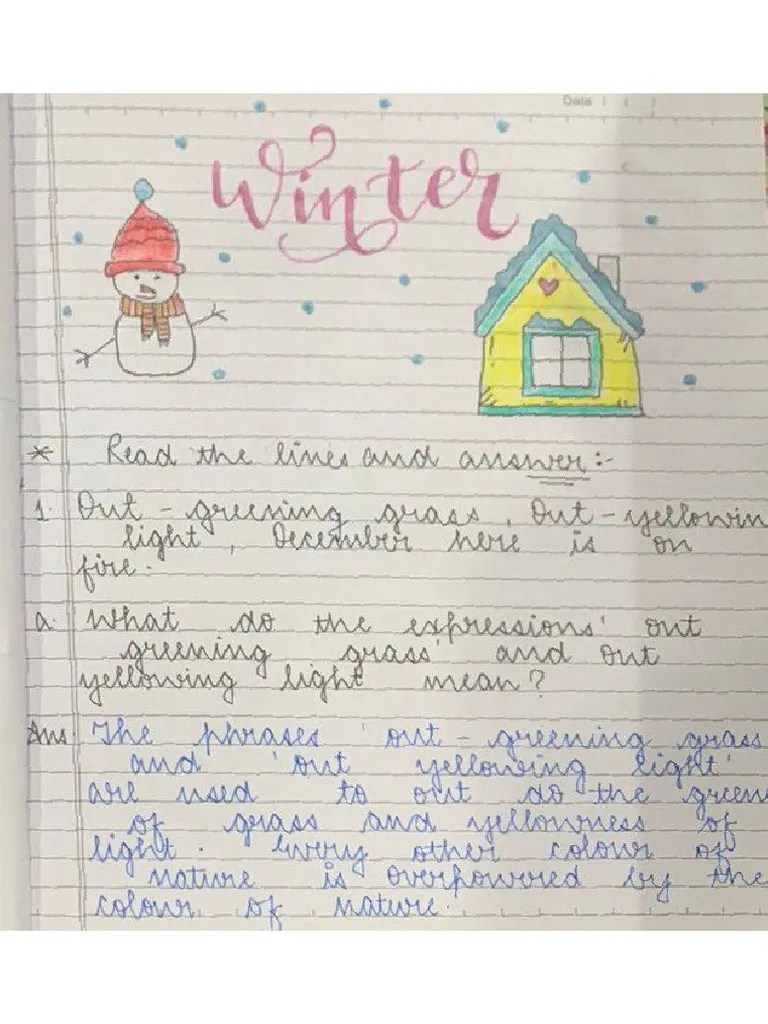 Date
Winter
* Read the lines and answer :-
1. Out - greening grass, Out - yellowin
light, December here is on
fire.
a. What do the expressions' out
greening grass' and out
yellowing light mean?
Ans. The phrases 'out - greening grass
and 'out yellowing light'
are used to out do the green
of grass and yellowness of
light. Every other colour of
nature is overpowered by the
colour of nature.